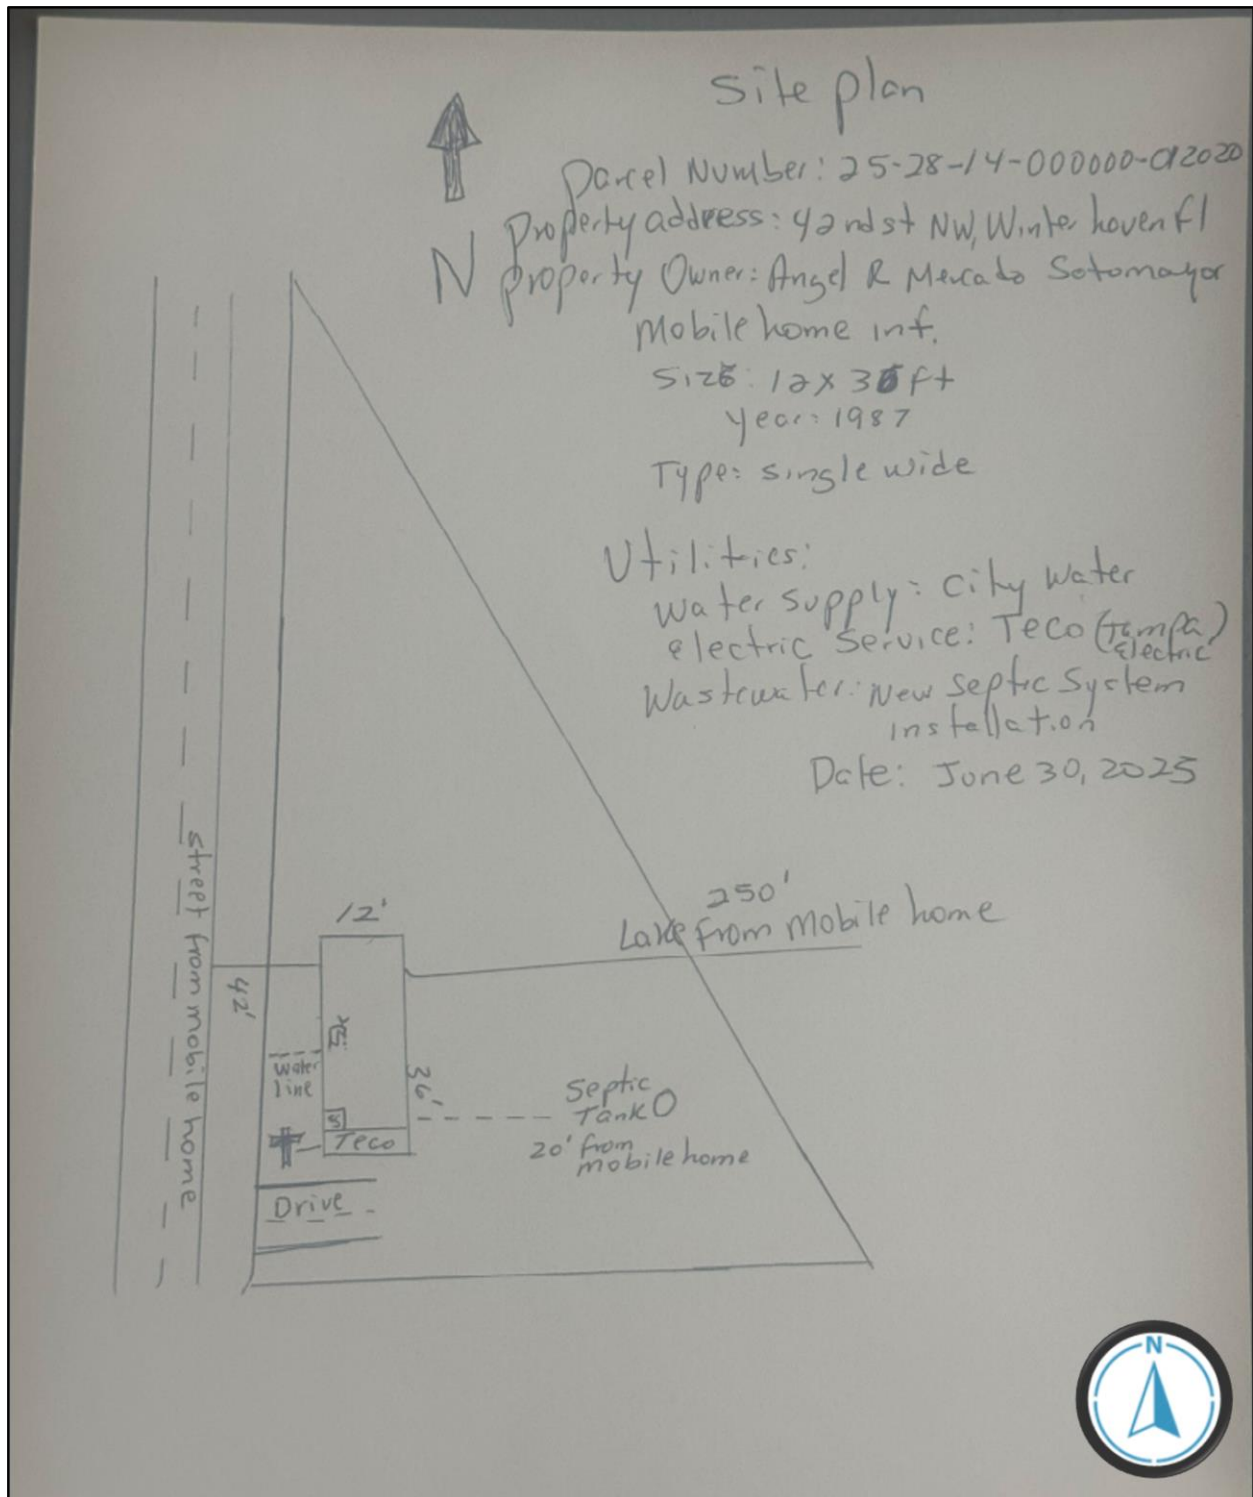 Site plan
Parcel Number: 25-28-14-000000-012020
Property address: 42nd st NW, Winter haven fl
N
Property Owner: Angel R Mercado Sotomayor
Mobile home inf.
Size: 12x36 ft
year: 1987
Type: single wide
Utilities:
Water supply: City Water
electric Service: Teco (Tampa
Electric)
Wastewater: New Septic System
installation
Date: June 30, 2025
street from mobile home
42'
12'
250'
Lake from mobile home
36'
water
line
S
Teco
Septic
Tank
20' from
mobile home
Drive
N